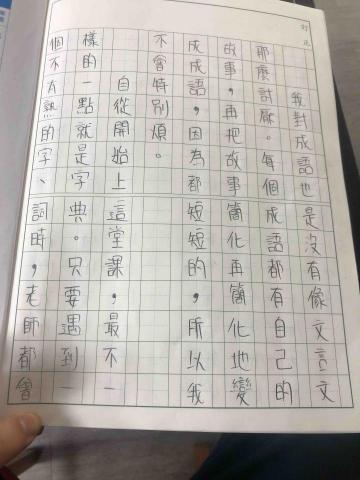 訂正
我對成語也是沒有像文言文
那麼討厭。每個成語都有自己的
故事,再把故事簡化再簡化地變
成成語,因為都短短的,所以我
不會特別煩。
自從開始上這堂課,最不一
樣的一點就是字典。只要遇到一
個不太熟的字、詞時,老師都會